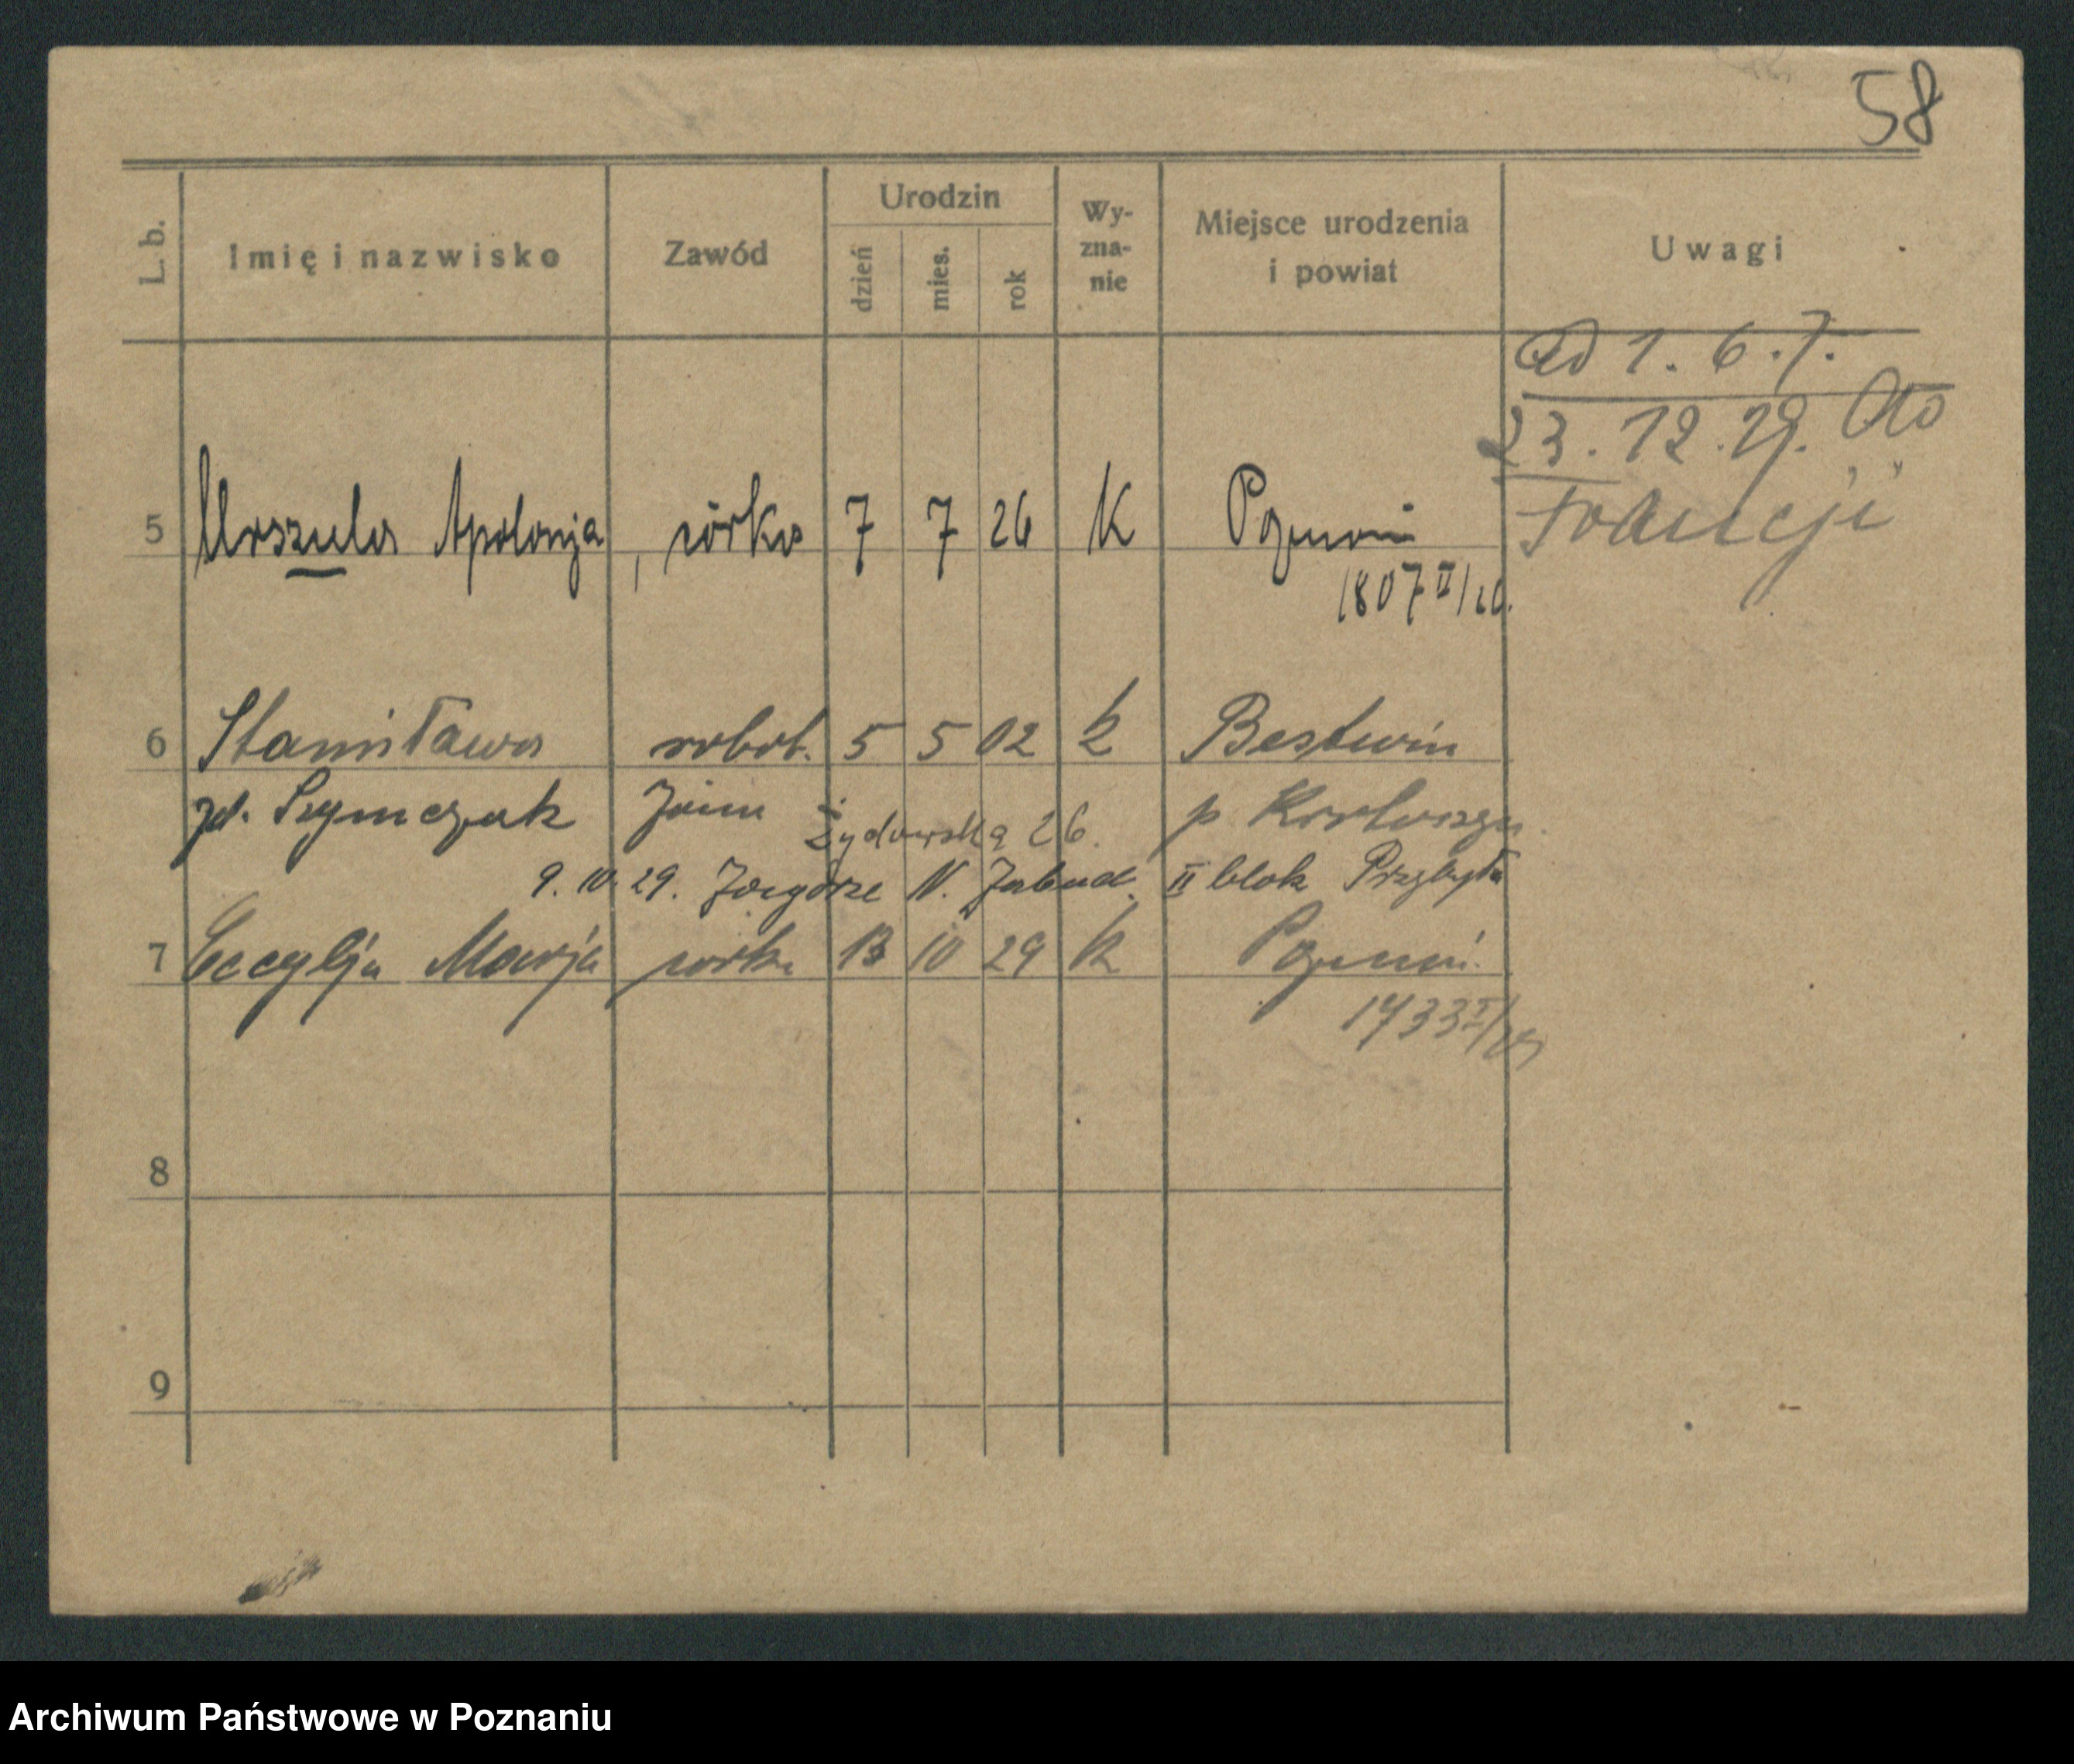 58
L. b.
Imię i nazwisko
Zawód
Urodzin
dzień
mies.
rok
Wy-
zna-
nie
Miejsce urodzenia
i powiat
Uwagi
ad 1. 6. 7.
23. 12. 29. do
Francji
5 Urszula Apolonja, córka 7 7 26 K Poznań
1807 II/26.
6 Stanisława robot. 5 5 02 k Bestwin
zd. Szymczak Żydowska 26. p Krotoszyn
9. 10. 29. Zagórze N. Zabud. II blok Przybyła
7 Cecylja Marja córka 13 10 29 k Poznań.
1733 I/29
8
9
Archiwum Państwowe w Poznaniu